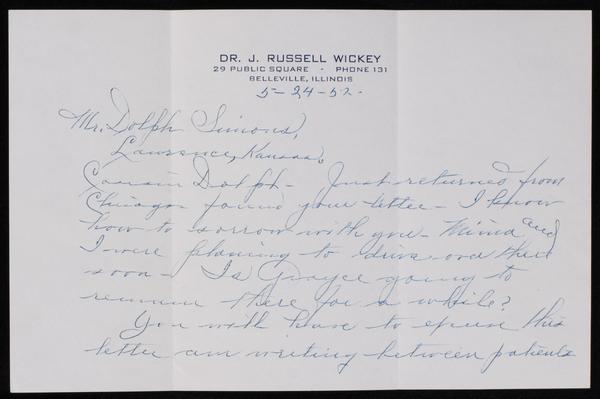 DR. J. RUSSELL WICKEY
29 PUBLIC SQUARE - PHONE 131
BELLEVILLE, ILLINOIS
5-24-52-
Mr. Dolph Simons,
Lawrence, Kansas.
Cousin Dolph - Just returned from
Chicago found your letter - I know
how to sorrow with you - Minna and
I were planning to drive over there
soon - Is Grayce going to
remain there for a while?
You will have to excuse this
letter am writing between patients